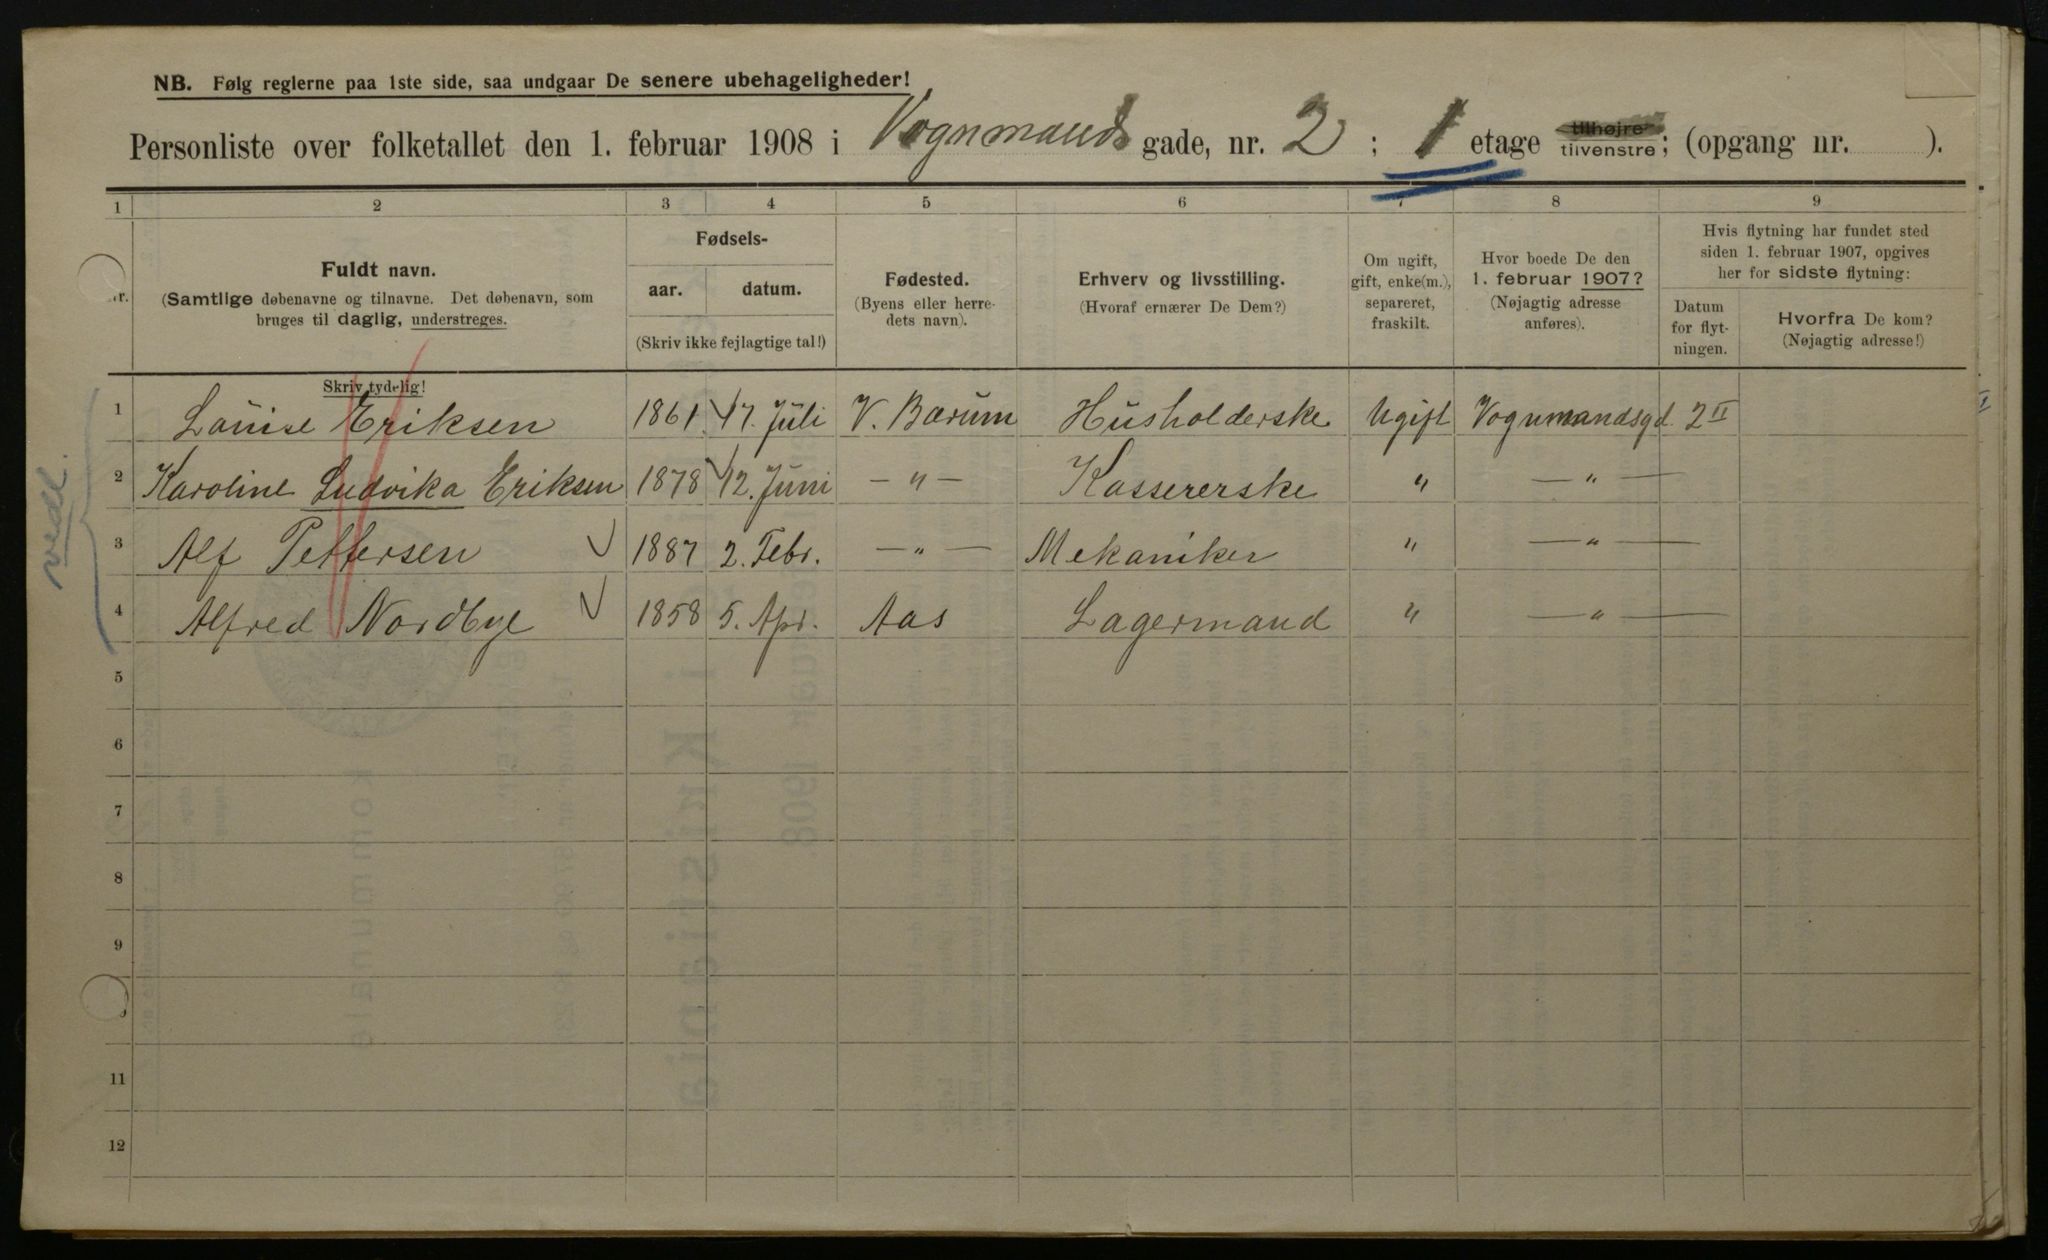 NB. Følg reglerne paa 1ste side, saa undgaar De senere ubehageligheder!
Personliste over folketallet den 1. februar 1908 i Vognmands gade, nr. 2; 1 etage tilhøjre tilvenstre; (opgang nr. ).
1 2 3 4 5 6 7 8 9
nr.
Fuldt navn.
(Samtlige døbenavne og tilnavne. Det døbenavn, som
bruges til daglig, understreges.
Skriv tydelig!
Fødsels-
aar. datum.
(Skriv ikke fejlagtige tal!)
Fødested.
(Byens eller herre-
dets navn).
Erhverv og livsstilling.
(Hvoraf ernærer De Dem?)
Om ugift,
gift, enke(m.),
separeret,
fraskilt.
Hvor boede De den
1. februar 1907?
(Nøjagtig adresse
anføres).
Hvis flytning har fundet sted
siden 1. februar 1907, opgives
her for sidste flytning:
Datum
for flyt-
ningen.
Hvorfra De kom?
(Nøjagtig adresse!)
1 Louise Eriksen 1861 17. Juli V. Bærum Husholderske Ugift Vognmandsgd. 2 II
2 Karoline Ludvika Eriksen 1878 12. Juni — " — Kassererske " — " —
3 Alf Pettersen 1887 2. Febr. — " — Mekaniker " — " —
4 Alfred Nordbye 1858 5. Apr. Aas Lagermand " — " —
5
6
7
8
9
11
12
vedl.